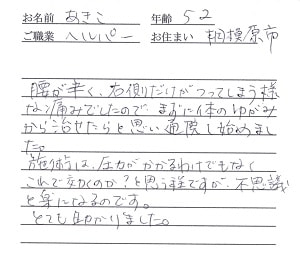 お名前 あきこ 年齢 52
ご職業 ヘルパー お住まい 相模原市
腰が辛く、右側だけがつってしまう様
な痛みでしたので、まずに体のゆがみ
から治せたらと思い通院し始めまし
た。
施術は、圧力がかかるわけでもなく
これで効くのか?と思う程ですが、不思議
と楽になるのです。
とても助かりました。